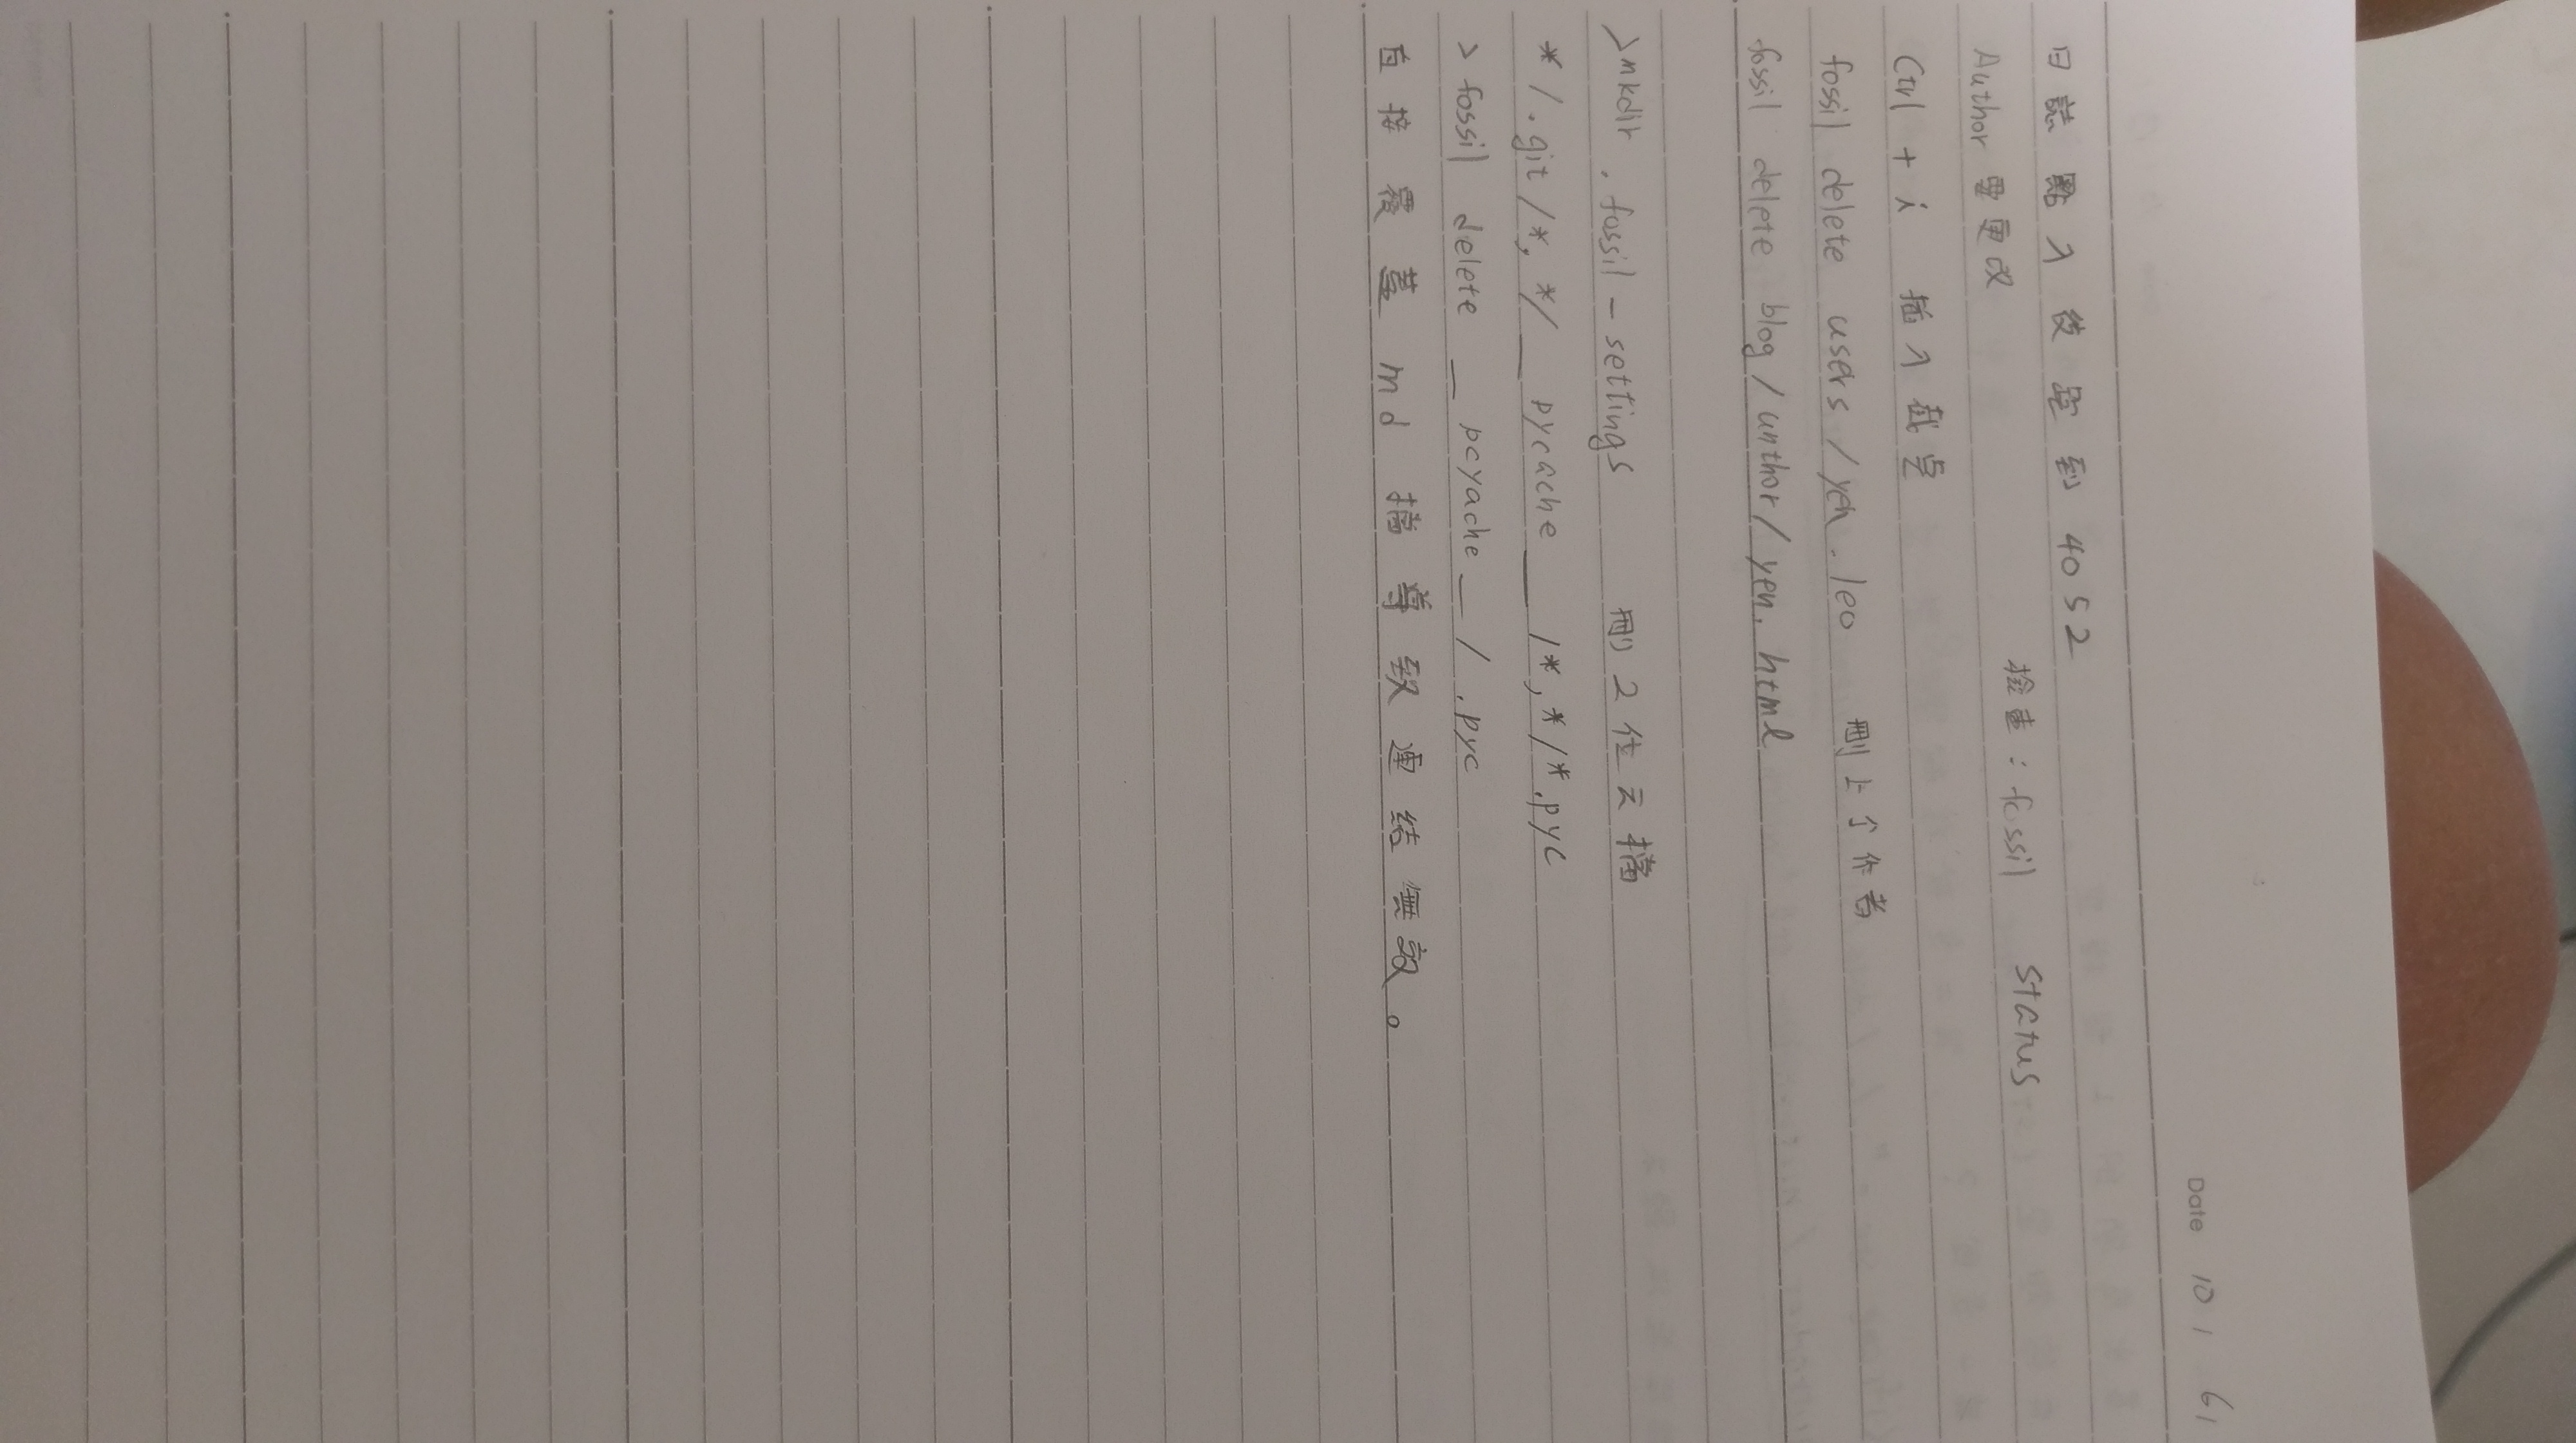 Date 10 / 6 /
日誌點入後跑到 4052
Author 要更改 檢查：fossil status
Ctrl + i 插入截點
fossil delete users / yen.leo 刪上个作者
fossil delete blog / anthor / yen.html
>mkdir .fossil-settings 刪2位元檔
*/.git/*, */__pycache__/*,*/*.pyc
> fossil delete __pcyache__/.pyc
直接覆蓋 md 檔導致連結無效。